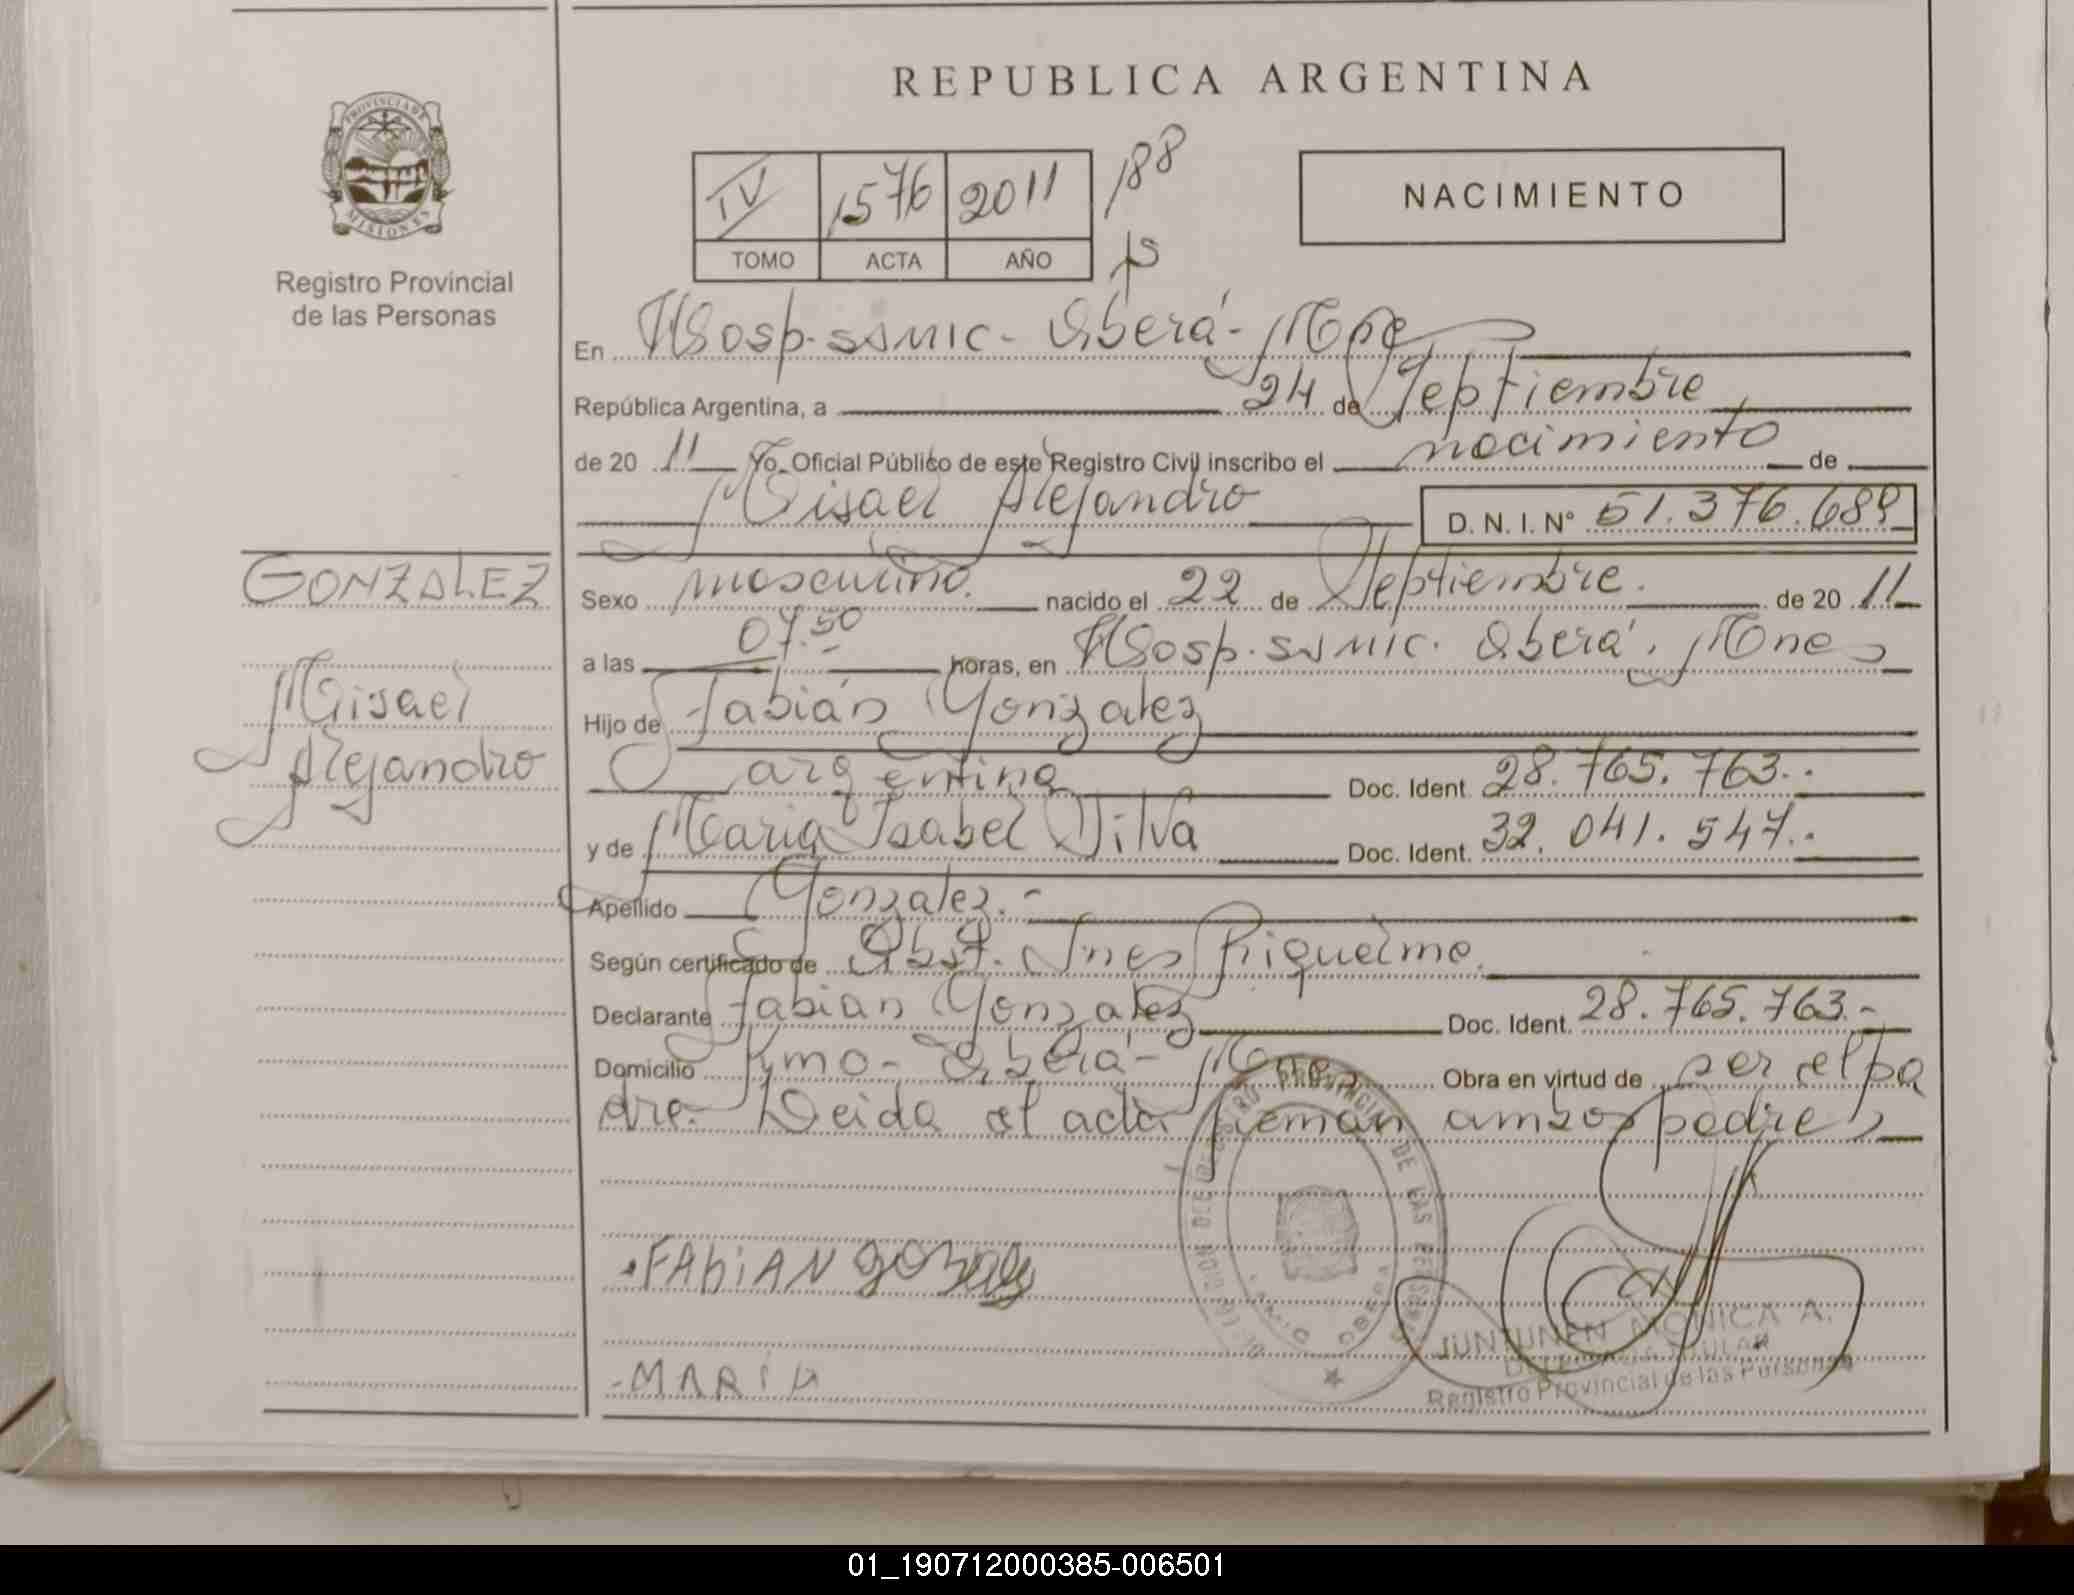 REPUBLICA ARGENTINA
PROVINCIA DE
MISIONES
Registro Provincial
de las Personas
IV 1576 2011 188
TOMO ACTA AÑO
NACIMIENTO
En Hosp. SSMIC - Oberá - Mnes
República Argentina, a 24 de Septiembre
de 20 11 Yo Oficial Público de este Registro Civil inscribo el nacimiento de
Misael Alejandro D. N. I. N° 51.376.689
GONZALEZ
Misael
Alejandro
Sexo masculino. nacido el 22 de Septiembre. de 20 11
a las 07.50 horas, en Hosp. SSMIC. Oberá. Mnes
Hijo de Fabián Gonzalez
argentina Doc. Ident. 28.765.763.-
y de Maria Isabel Silva Doc. Ident. 32.041.547.-
Apellido Gonzalez.-
Según certificado de Obst. Ines Riquelme.
Declarante Fabian Gonzalez Doc. Ident. 28.765.763.-
Domicilio Kmo - Oberá - Mnes Obra en virtud de ser el pa
dre. Leida el acta firman ambos padres
FABiAN
-MARíA
JUNTUNEN MONICA A.
Registro Provincial de las Personas
01_190712000385-006501